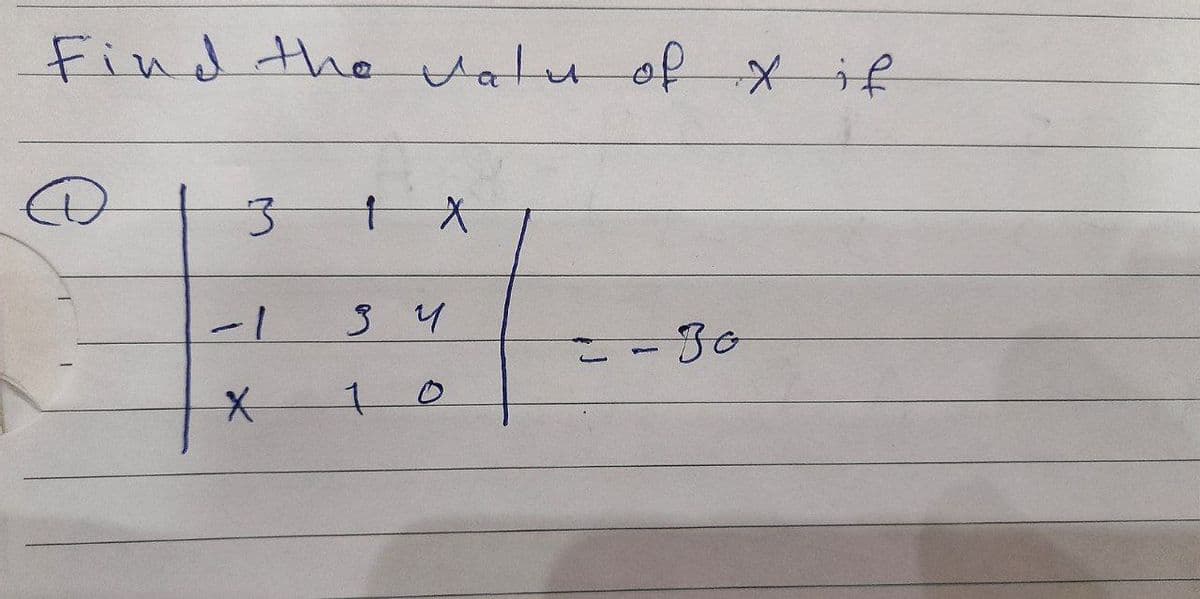 Find the valu of x if
① | 3 1 x |
| -1 3 4 | = -30
| x 1 0 |